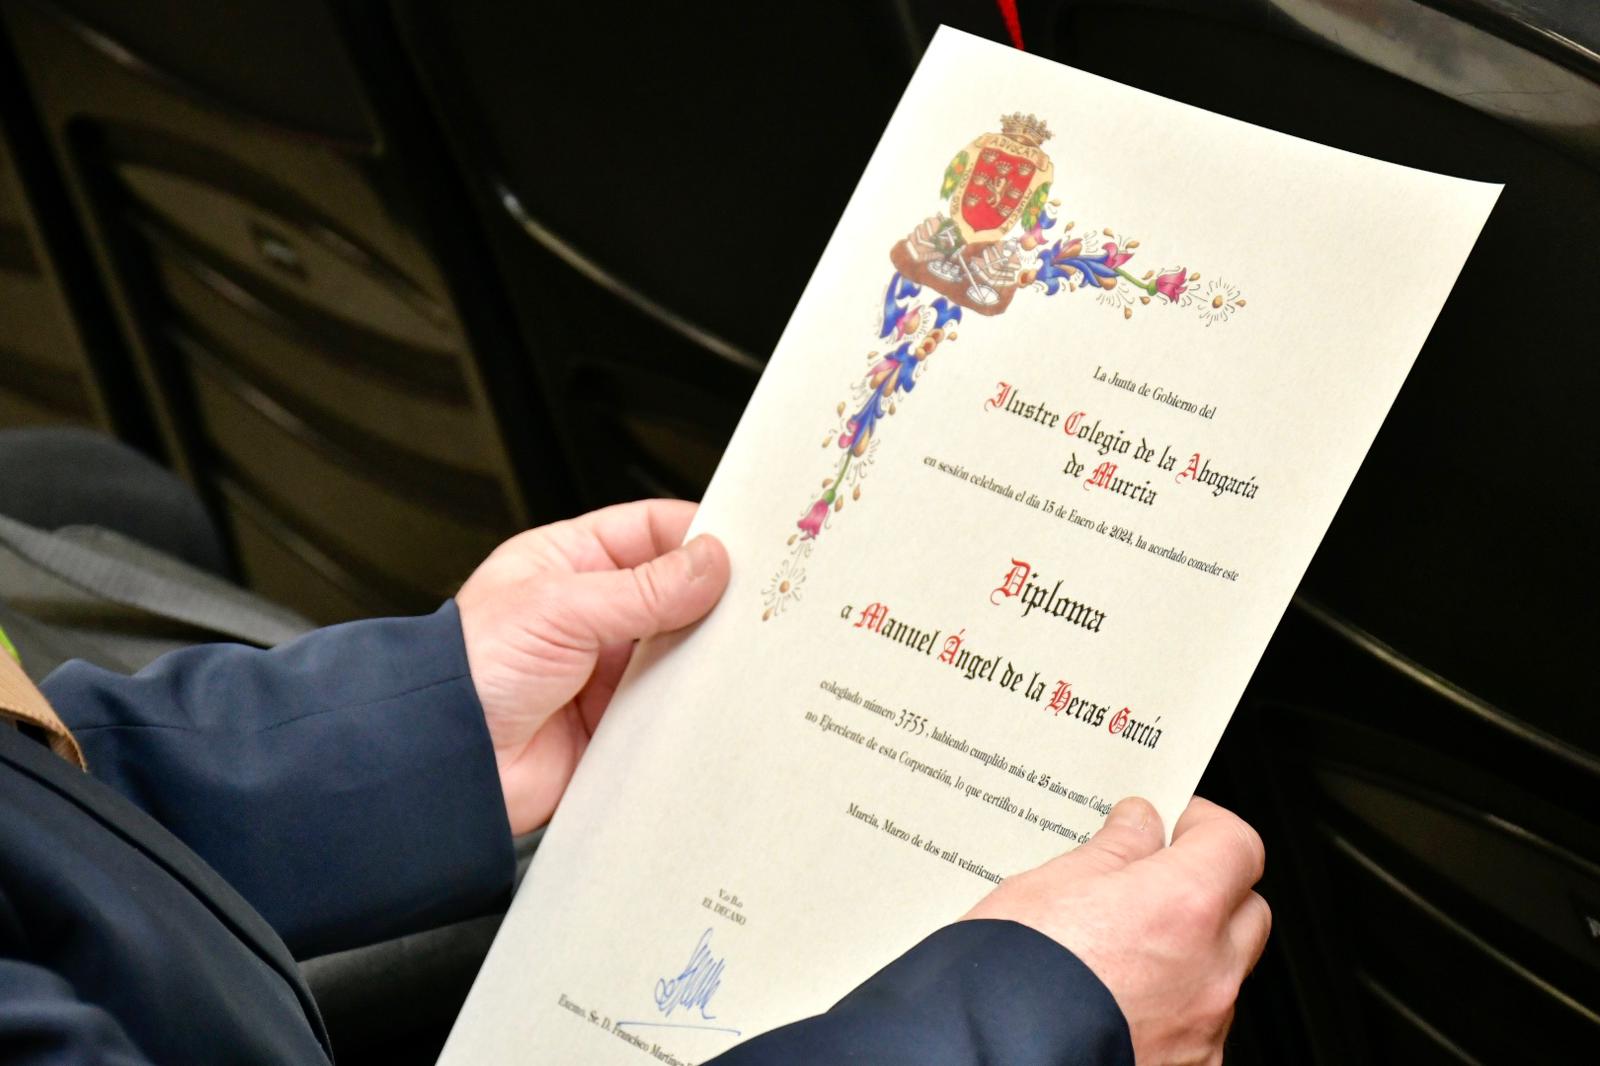 ADVOCATI
La Junta de Gobierno del
Ilustre Colegio de la Abogacía
de Murcia
en sesión celebrada el día 15 de Enero de 2024, ha acordado conceder este
Diploma
a Manuel Ángel de la Heras García
colegiado número 3755, habiendo cumplido más de 25 años como
no Ejerciente de esta Corporación, lo que certifico a los oportunos
Murcia, Marzo de dos mil
V.o B.o
EL DECANO
Excmo. Sr. D. Francisco